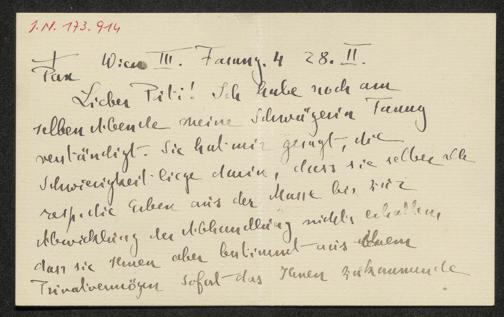 J.N. 173.914
Pax Wien III. Fasang. 4 28. II.
Lieber Piti! Ich habe noch am
selben Abende meine Schwägerin Fanny
verständigt. Sie hat mir gesagt, die
Schwierigkeit liege darin, dass sie selber als
resp. die Erben aus der Masse bis zur
Abwicklung der Abhandlung nichts erhalten,
dass sie Ihnen aber bestimmt aus
Privatvermögen sofort das Ihnen zukommende